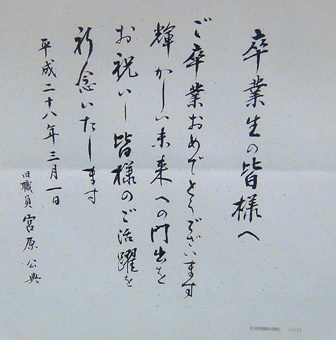 卒業生の皆様へ
ご卒業おめでとうございます
輝かしい未来への門出を
お祝いし皆様のご活躍を
祈念いたします
平成二十八年三月一日
旧職員 宮原公典